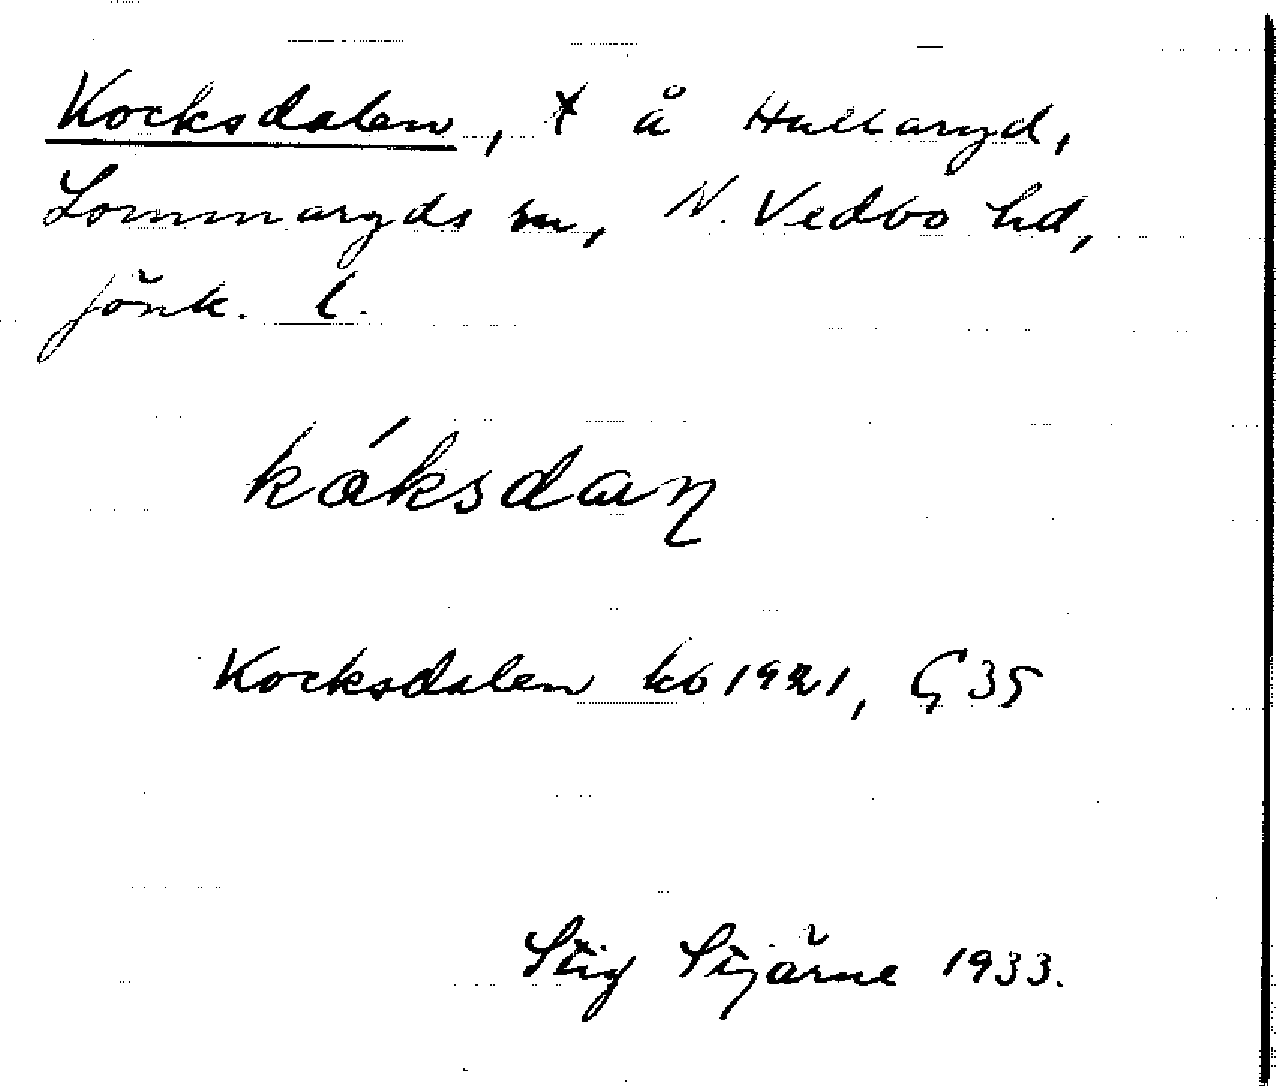 Kocksdalen, † å Hullaryd,
Lommaryds sn, N. Vedbo hd,
Jönk. l.
kåksdaɳ
Kocksdalen kb 1921, G 35
Stig Stjärne 1933.